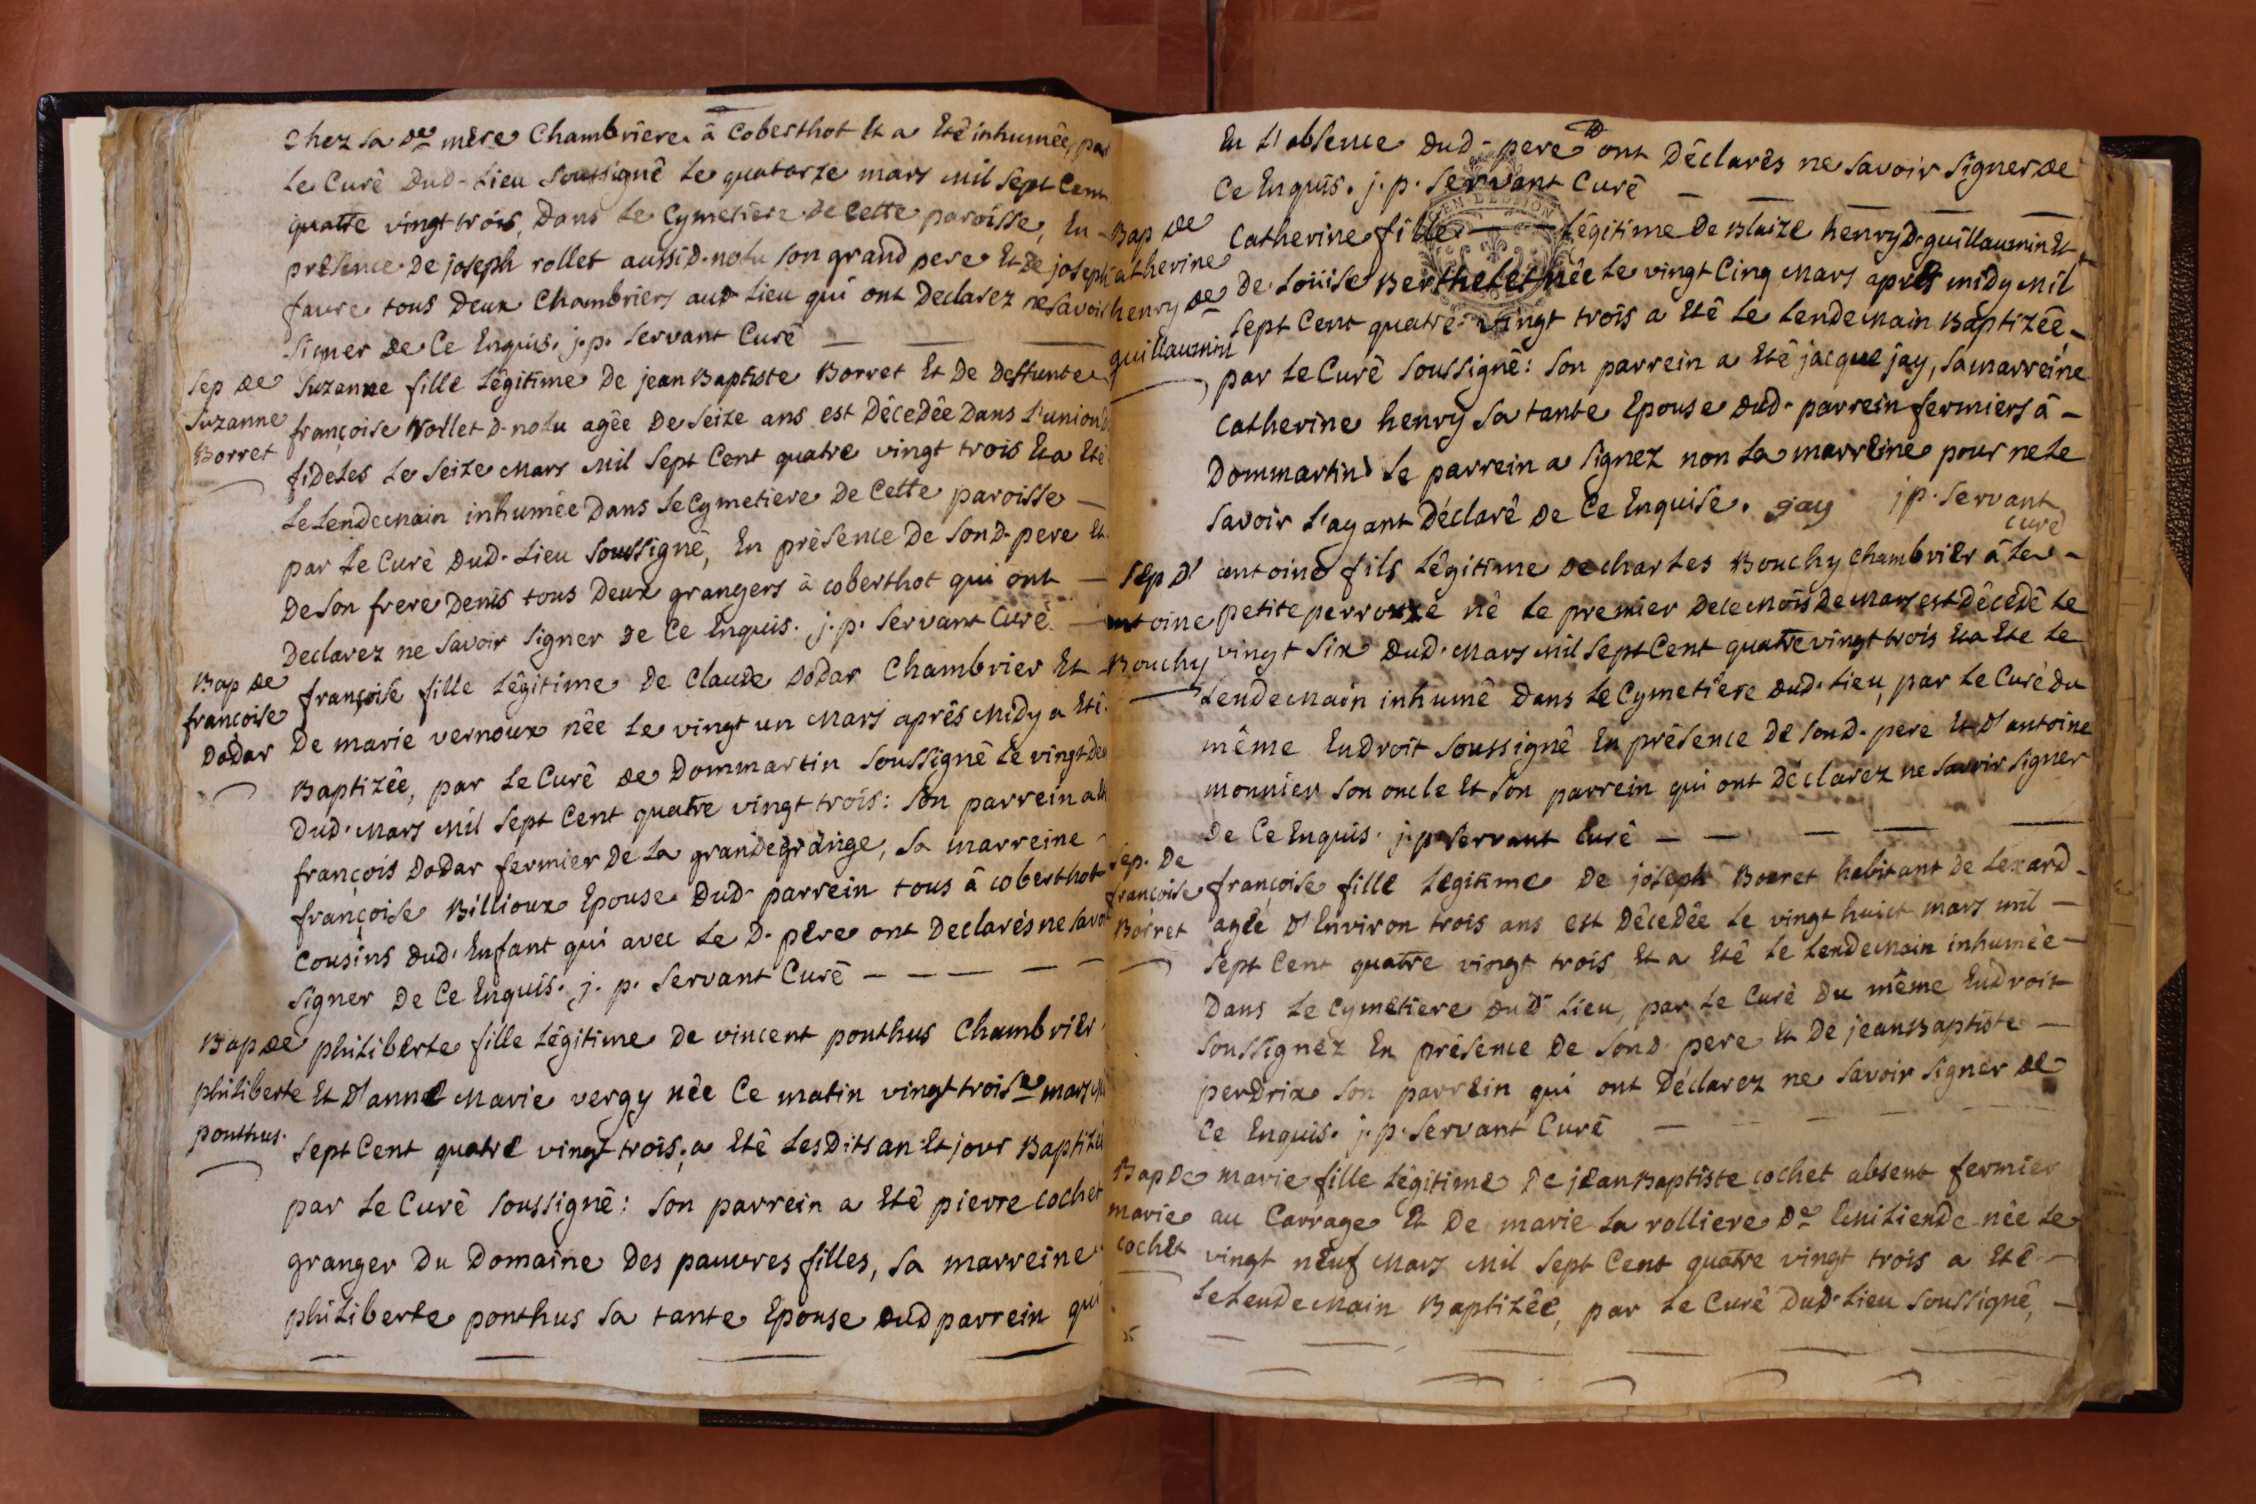 chez sa de mére Chambriere à Coberthot Et a Eté inhumée, par
Le Curé Dud. Lieu Soussigné Le quatorze mars mil Sept Cent
quatre vingt trois, Dans Le Cymetiere De Cette paroisse, En
présence De joseph rollet aussi D. son grand pere Et De joseph
faure tous Deux Chambriers aud Lieu qui ont Declarez ne savoir
Signer De Ce Enquis. j. p. Servant Curé
Sep de
Suzanne
Borret
Suzanne fille Légitime De jean Baptiste Borret Et De Deffunte
françoise Rollet D. agée De Seize ans est Décedée Dans L'union
fideles Le Seize Mars Mil Sept Cent quatre vingt trois Et a Eté
Le Lendemain inhumée Dans Le Cymetiere De Cette paroisse
par Le Curé Dud. Lieu Soussigné, En présence De Sond. pere Et
De Son frere Denis tous Deux grangers à coberthot qui ont
Declarez ne Savoir Signer De Ce Enquis. j. p. Servant Curé
Bap de
françoise
Dodar
françoise fille Légitime De Claude Dodar Chambrier Et
De marie vernoux née Le vingt un Mars aprés Midy a Eté
Baptizée, par Le Curé De Dommartin Soussigné Le vingt De
Dud. Mars Mil Sept Cent quatre vingt trois: Son parrein a
françois Dodar fermier De La grande grange, Sa marreine
françoise Billioux Epouse Dud. parrein tous à coberthot
Cousins Dud. Enfant qui avec Le D. pere ont Declarés ne Savoi
Signer De Ce Enquis. j. p. Servant Curé
Bap de
philiberte
ponthus.
philiberte fille Légitime De vincent ponthus Chambrier
Et D'anne Marie vergy née Ce matin vingt troise mars
Sept Cent quatre vingt trois, a Eté LesDits an Et jour Baptizée
par Le Curé Soussigné: Son parrein a Eté pierre cochet
granger Du Domaine Des pauvres filles, Sa marreine
philiberte ponthus Sa tante Epouse Dud parrein qui
En L'absence Dud. pere ont Déclarés ne Savoir Signer de
Ce Enquis. j. p. Servant Curé
Bap de
Catherine
henry de
guillaumin
Catherine fille Légitime De Blaize henry D. guillaumin Et
De Loüise Berthelet née Le vingt Cinq Mars aprés midy Mil
Sept Cent quatre vingt trois a Eté Le Lendemain Baptizée,
par Le Curé Soussigné: Son parrein a Eté jacque jay, Sa marreine
Catherine henry Sa tante Epouse Dud. parrein fermiers à
Dommartin Le parrein a Signez non La marreine pour ne Le
Savoir L'ayant Déclaré De Ce Enquise. gay j p. Servant
curé
Sep D'
antoine
Bouchy
antoine fils Légitime De charles Bouchy Chambrier à La
petite perrouze né Le premier De ce Mois De Mars est Décedé Le
vingt Six Dud. Mars Mil Sept Cent quatre vingt trois Et a Eté Le
Lendemain inhumé Dans Le Cymetiere Dud. Lieu, par Le Curé Du
même Endroit Soussigné En présence De Sond. pere Et D'antoine
monnier Son oncle Et Son parrein qui ont Déclarez ne Savoir Signer
De Ce Enquis. j. p. Servant Curé
Sep. De
françoise
Borret
françoise fille Légitime De joseph Borret habitant de Lezard
agée D'Environ trois ans est Décedée Le vingt huict mars mil
Sept Cent quatre vingt trois Et a Eté Le Lendemain inhumée
Dans Le Cymetiere Dud Lieu, par Le Curé Du même Endroit
Soussignéz En présence De Sond. pere Et De jean Baptiste
perdrix Son parrein qui ont Déclarez ne Savoir Signer de
Ce Enquis. j. p. Servant Curé
Bap De
marie
cochet
marie fille Légitime De jean Baptiste cochet absent fermier
au Carrage Et De marie La rolliere De née Le
vingt neuf Mars Mil Sept Cent quatre vingt trois a Eté
Le Lendemain Baptizée, par Le Curé Dud. Lieu Soussigné,